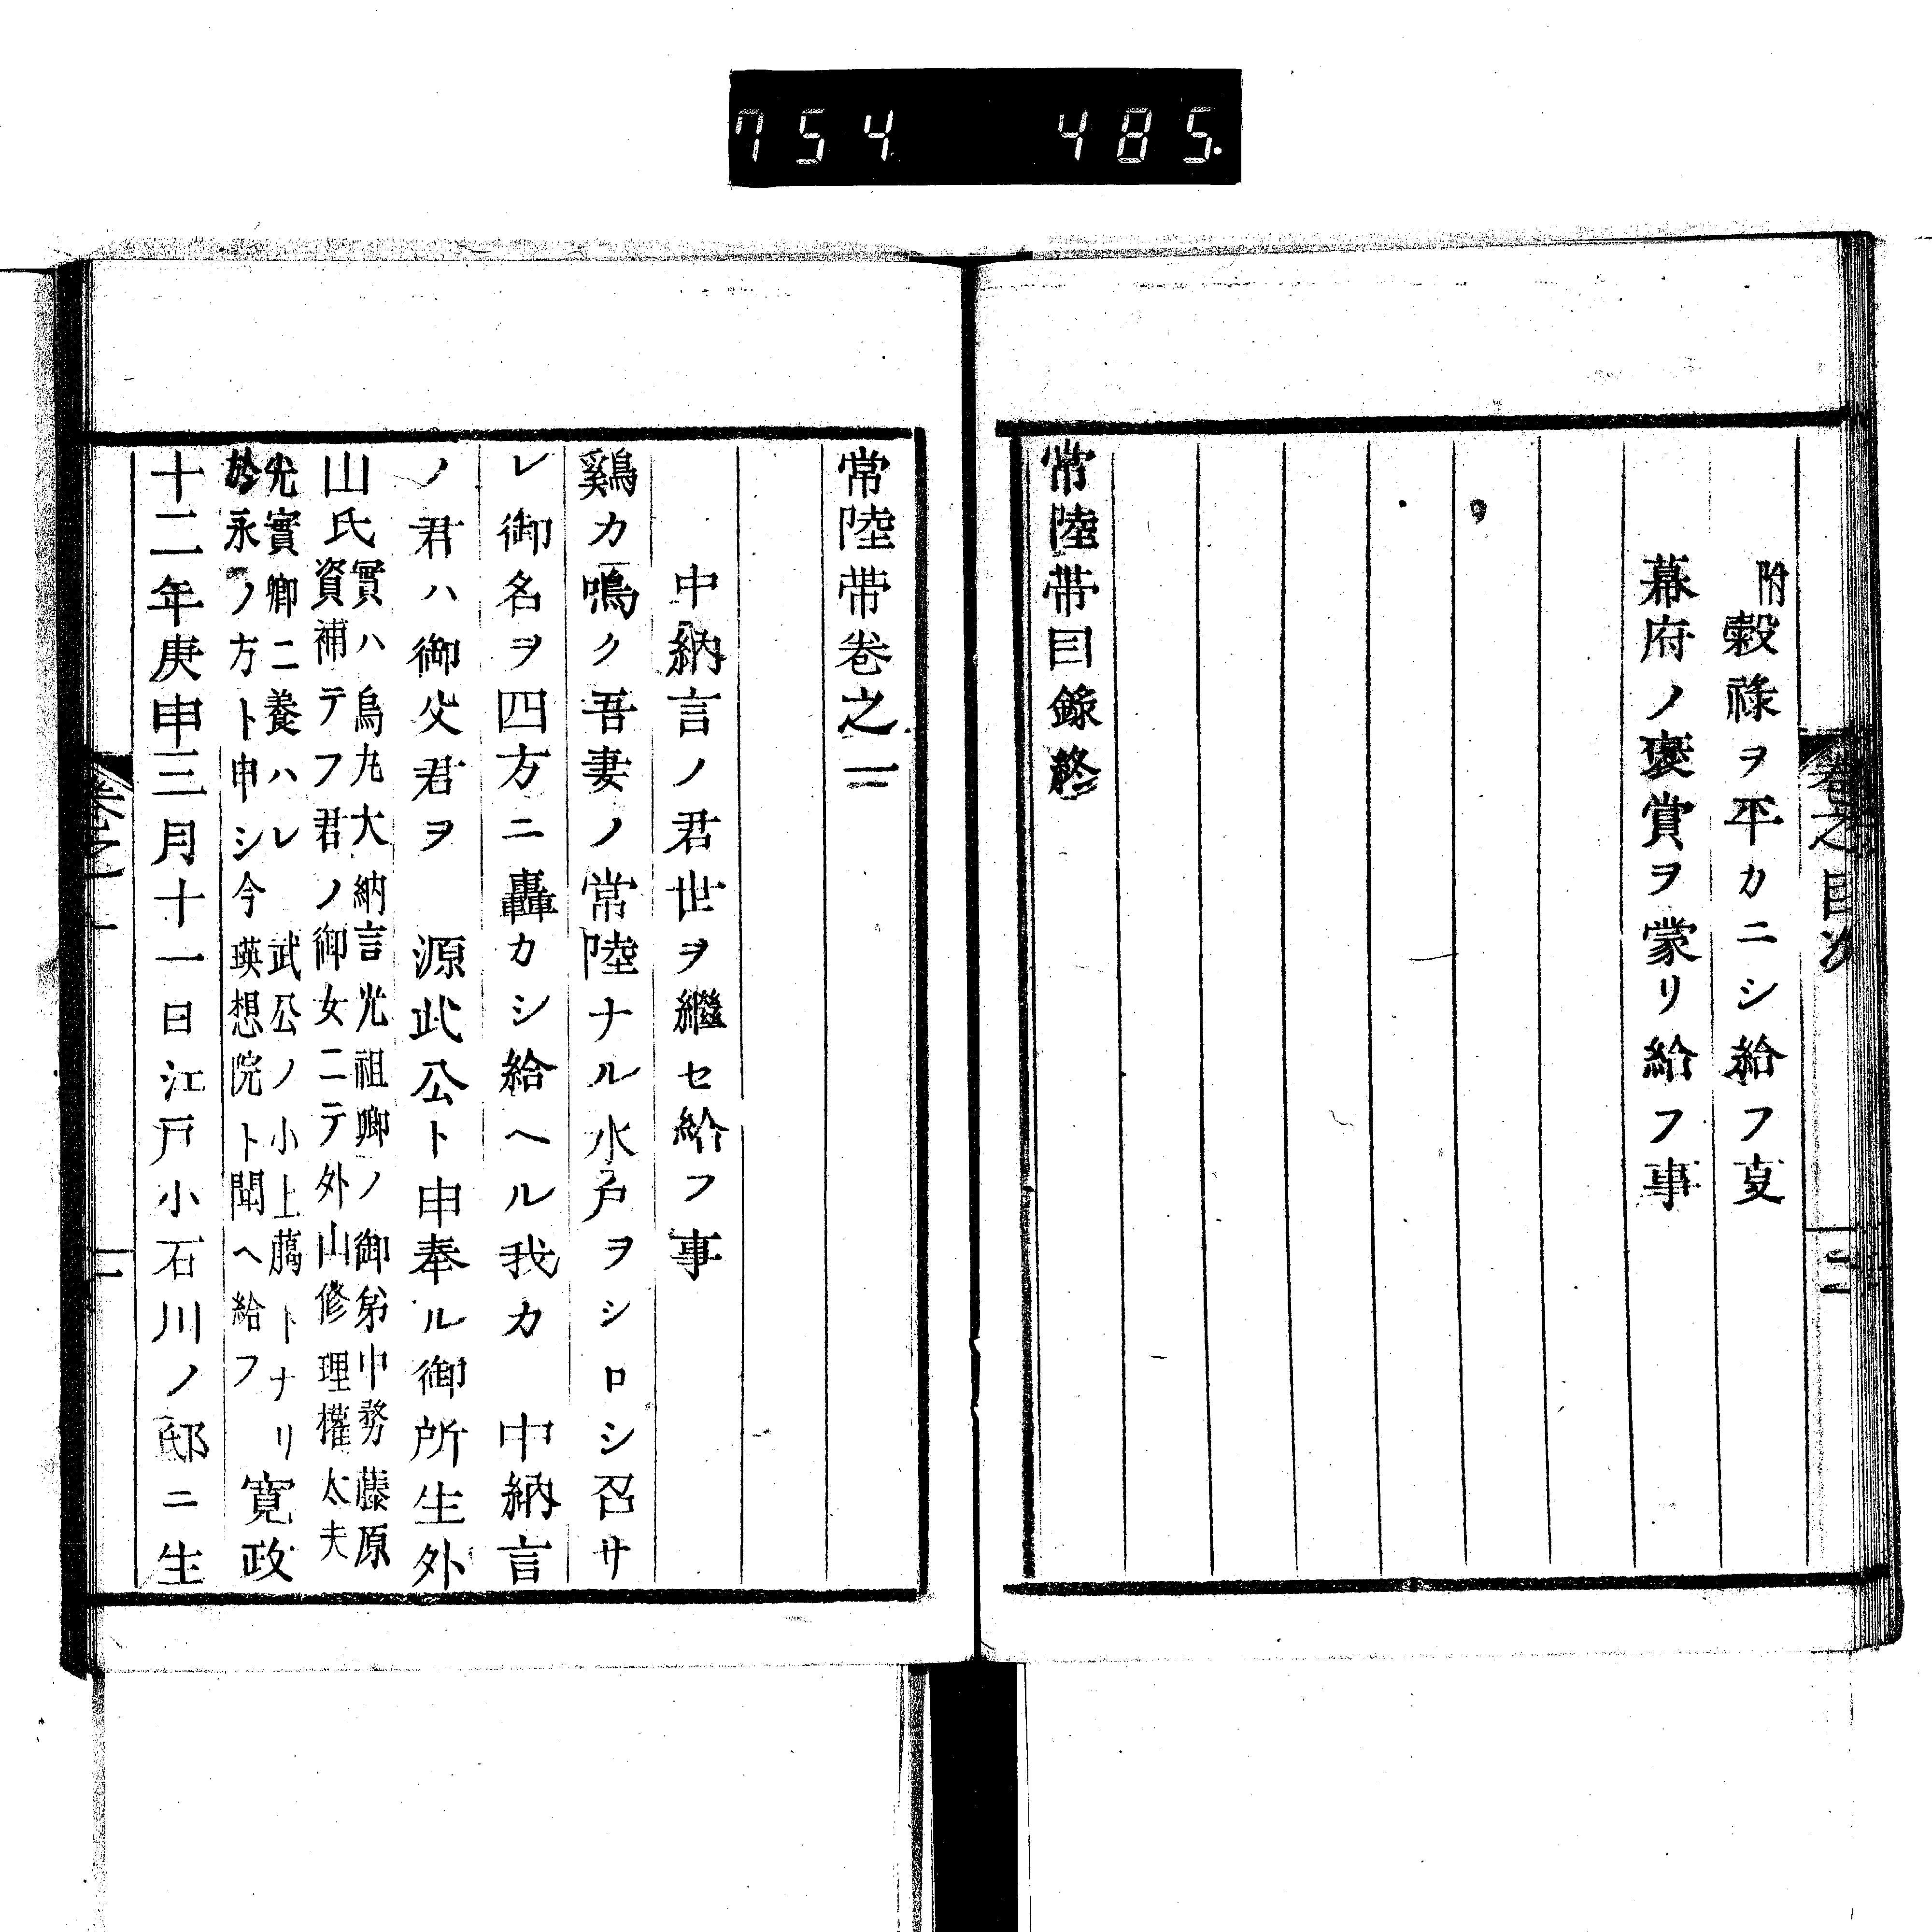 754 485.
卷之目次
附穀祿ヲ平カニシ給フ叓
幕府ノ褒賞ヲ蒙リ給フ事
常陸帯目錄終
二
常陸帯卷之一
中納言ノ君世ヲ繼セ給フ事
鷄カ鳴ク吾妻ノ常陸ナル水戸ヲシロシ召サ
レ御名ヲ四方ニ轟カシ給ヘル我カ 中納言
ノ君ハ御父君ヲ 源武公ト申奉ル御所生外
山氏
實ハ烏丸大納言光祖卿ノ御弟中務藤原
資補テフ君ノ御女ニテ外山修理權太夫
光實卿ニ養ハレ 武公ノ小上﨟トナリ
於永ノ方ト申シ今 瑛想院ト聞ヘ給フ
寛政
十二年庚申三月十一日江戸小石川ノ邸ニ生
卷之一
一